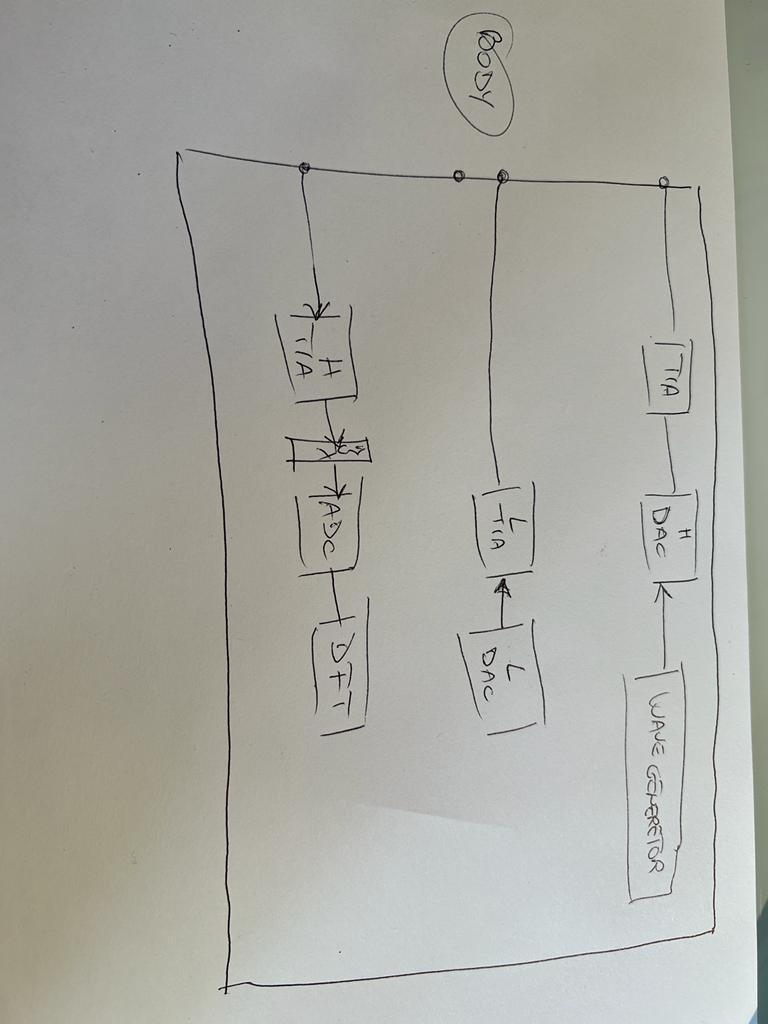 TIA
H
DAC
WAVE GENERETOR
BODY
L
TIA
L
DAC
H
TIA
MUX
ADC
DFT